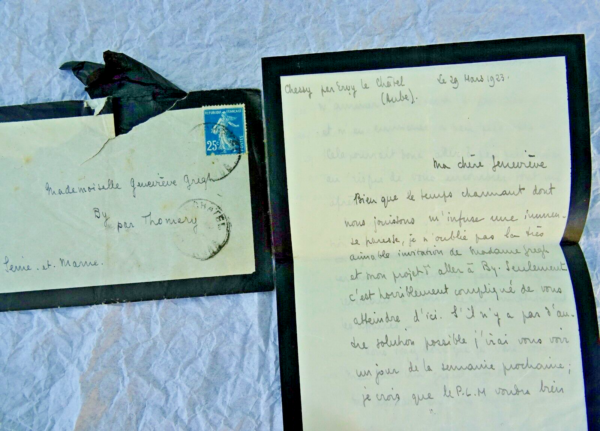 Mademoiselle Geneviève Gregh
By
par Thomery
Seine-et-Marne.
25c
CHATEL
Chessy par Ervy le Châtel
(Aube).
le 29 Mars 1923.
Ma chère Geneviève
Bien que le temps charmant dont
nous jouissons m'infuse une immen-
se paresse, je n'oublie pas la très
aimable invitation de Madame Gregh
et mon projet d'aller à By. Seulement
c'est horriblement compliqué de vous
atteindre d'ici. S'il n'y a pas d'au-
tre solution possible j'irai vous voir
un jour de la semaine prochaine;
je crois que le P.L.M voudra bien